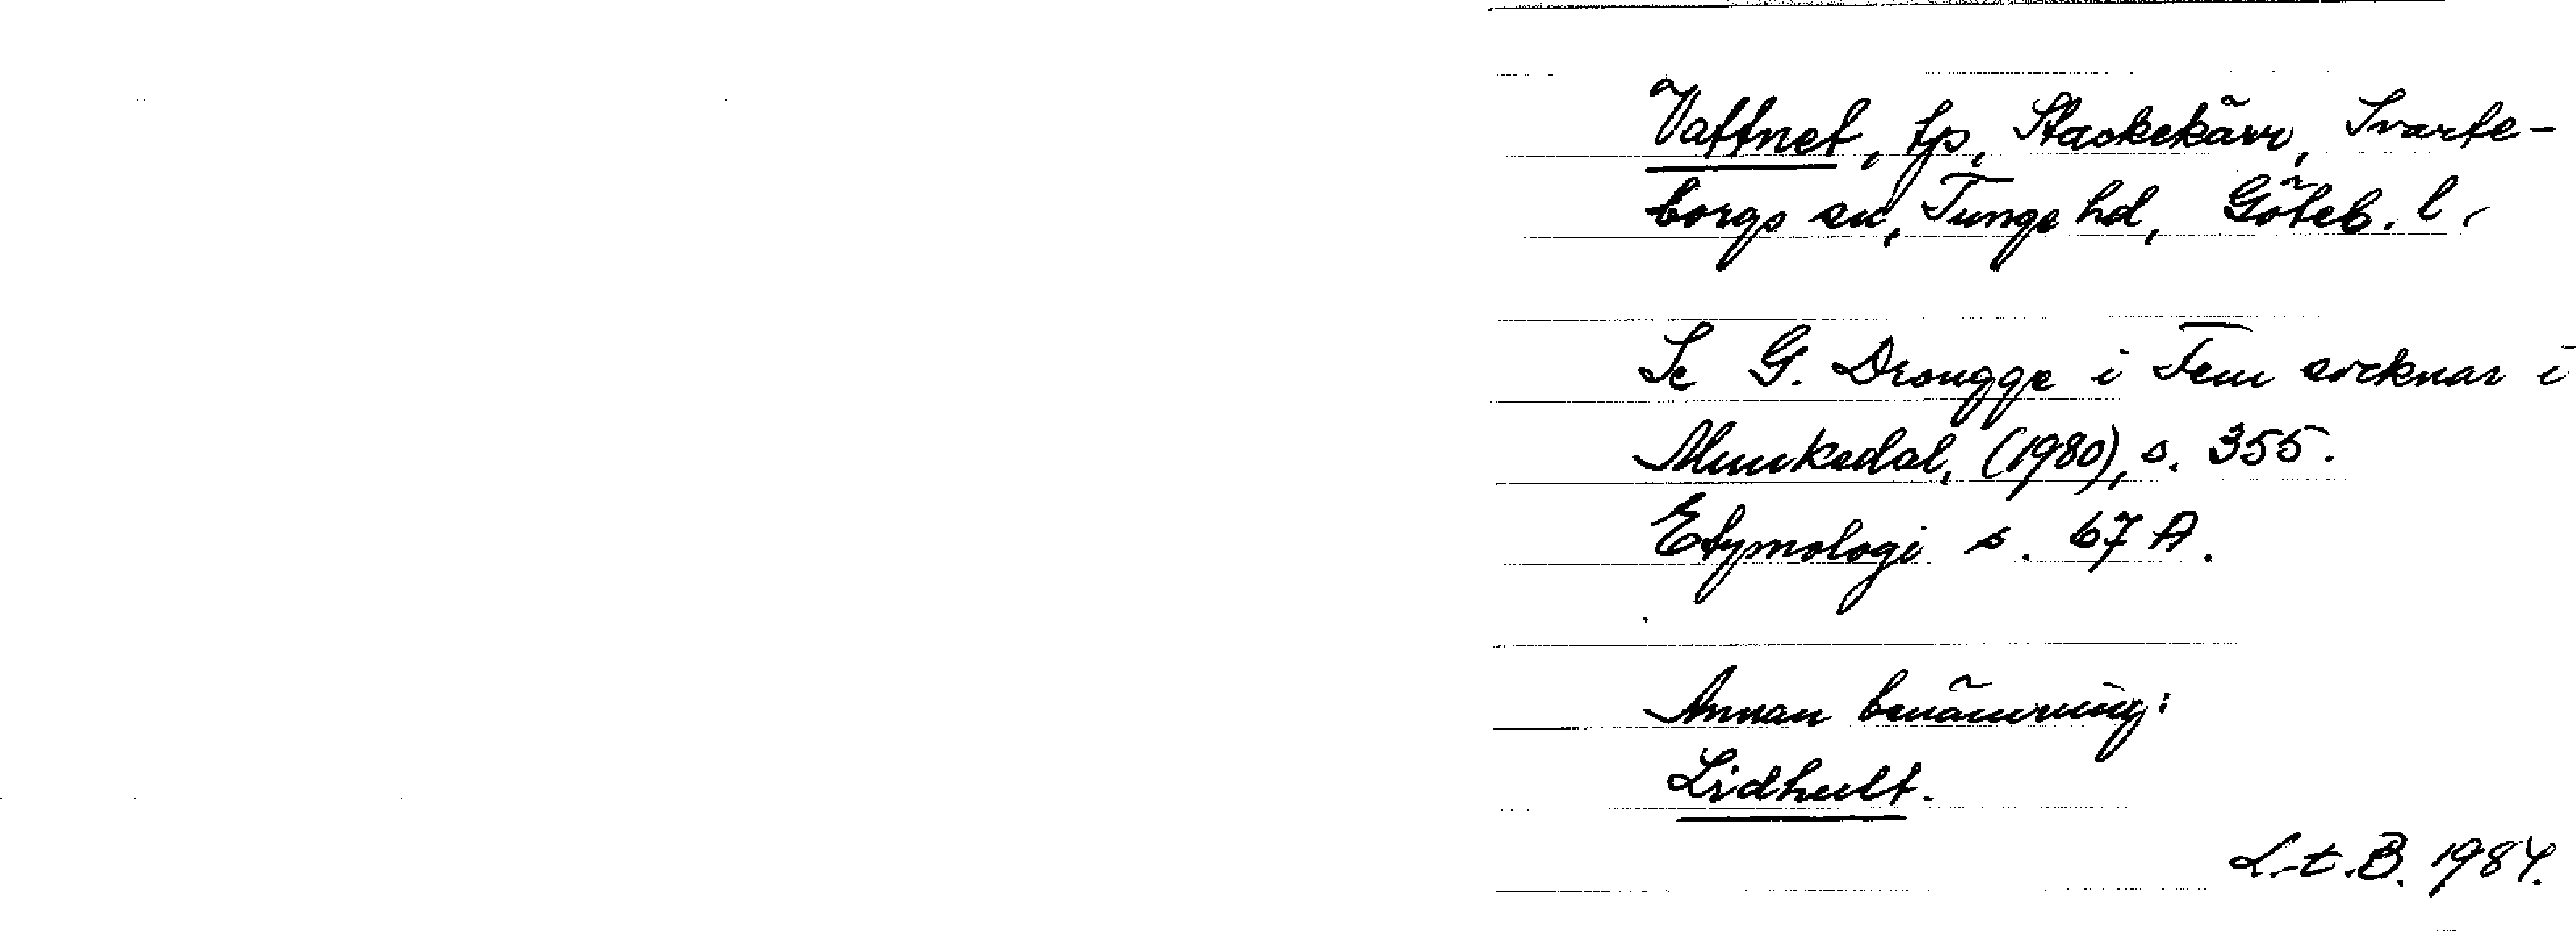 Vattnet, tp, Stackekärr, Svarte-
borgs sn, Tunge hd, Göteb. l.
Se G. Drougge i Fem socknar i
Munkedal, (1980), s. 355.
Etymologi s. 67 A.
Annan benämning:
Lidhult.
L-t.B. 1984.